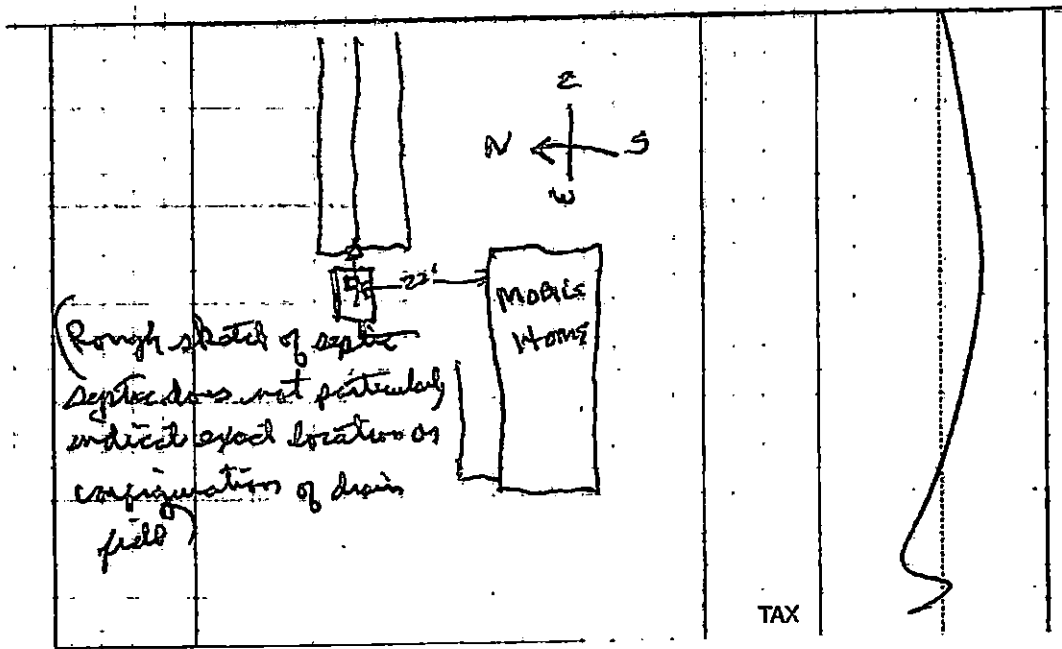 E
N
S
W
22'
MOBILE
HOME
(Rough sketch of septic
septic does not particularly
indicat exact location or
configuration of drain
field)
TAX